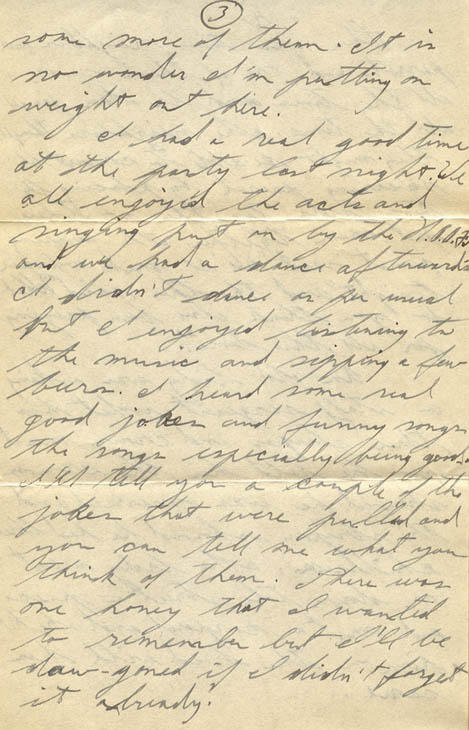 3
some more of them. It is
no wonder I'm putting on
weight out here.
I had a real good time
at the party last night. We
all enjoyed the acts and
singing put on by the
and we had a dance afterwards
I didn't dance as per usual
but I enjoyed listening to
the music and sipping a few
beers. I heard some real
good jokes and funny songs
the songs especially being good.
I'll tell you a couple of the
jokes that were pulled and
you can tell me what you
think of them. There was
one honey that I wanted
to remember but I'll be
daw-goned if I didn't forget
it already.